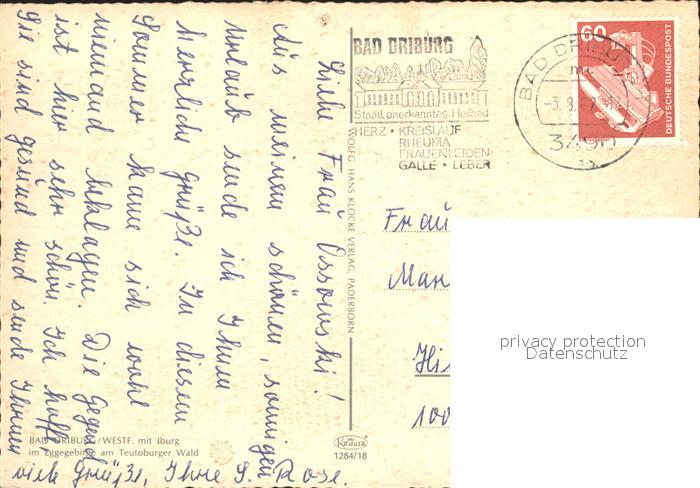 Liebe Frau Ossowski!
Aus meinem schönen, sonnigen
Urlaub sende ich Ihnen
herzliche Grüße. In diesem
Sommer kann sich wohl
niemand beklagen. Die Gegend
ist hier sehr schön. Ich hoffe,
Sie sind gesund und sende Ihnen
viele Grüße, Ihre S. Rose.
BAD DRIBURG/WESTF. mit Iburg
im Eggegebirge am Teutoburger Wald
WOLFG. HANS KLOCKE VERLAG, PADERBORN
KRÜGER
1284/18
BAD DRIBURG
Staatl. anerkanntes Heilbad
HERZ • KREISLAUF
RHEUMA
FRAUENLEIDEN
GALLE • LEBER
BAD DRIBURG
-3.8.
3490
60
DEUTSCHE BUNDESPOST
Frau
Mar
Hi
100
privacy protection
Datenschutz